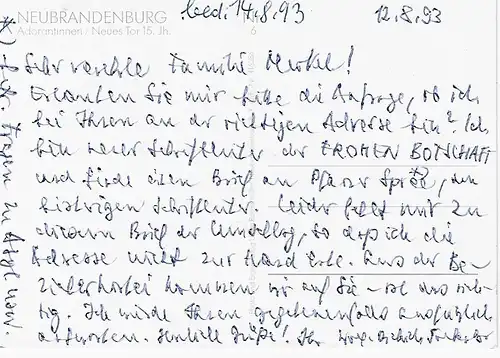 NEUBRANDENBURG
Adorantinnen / Neues Tor 15. Jh.
bed. 14.8.93
12.8.93
Sehr verehrte Familie Merkel!
Erlauben Sie mir bitte die Anfrage, ob ich
bei Ihnen an der richtigen Adresse bin? Ich
bin neuer Schriftleiter der FROHEN BOTSCHAFT
und finde einen Brief an Pfarrer den
bisherigen Schriftleiter. Leider fehlt mir zu
diesem Brief der Umschlag, so daß ich die
Adresse nicht zur Hand habe. Aus der Be-
zieherkartei kommen wir auf Sie - ist das rich-
tig. Ich würde Ihnen gegebenenfalls ausführlich
antworten. Herzliche Grüße! Ihr